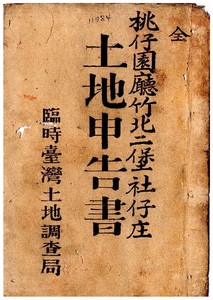 11984
全
桃仔園廳竹北二堡社仔庄
土地申告書
臨時臺灣土地調查局